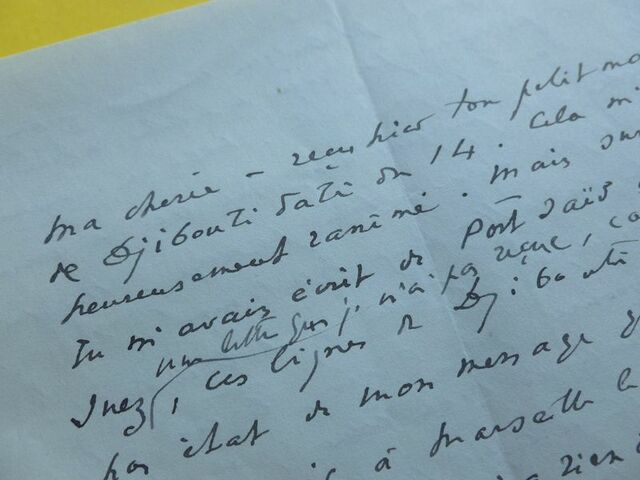 ma chérie – reçu hier ton petit mo
de Djibouti daté du 14. Cela m'
heureusement ranimé. mais sur
Tu m'avais écrit de Port Saïd
une lettre que je n'ai pas reçue, co
Inez, ces lignes de Djibouti
pas état de mon message q
à Marseille le
rien